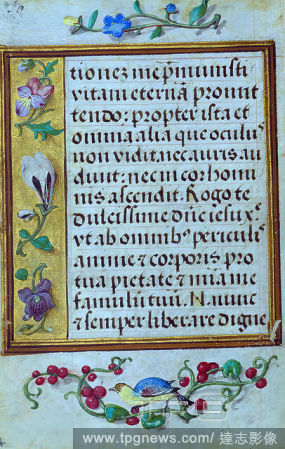 tionez me p̄miumsti
vitam eternā promit
tendo: propter ista et
omnia alia que oculuˢ
non vidit nec auris au
diuit: nec in cor homi
nis ascendit. Rogo te
dulcissime dn̄e iesu xᵉ
vt ab omnibꝰ periculis
anime ⁊ corporis pro
tua pietate ⁊ mīa me
famulū tuū. N. nunc
⁊ semper liberare digne
www.tpgnews.com/ 達志影像